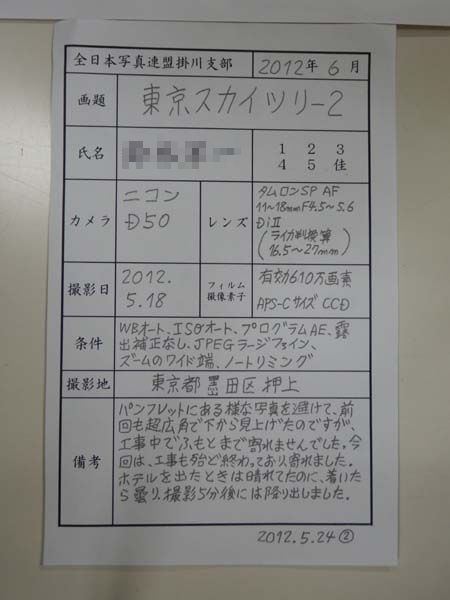 全日本写真連盟掛川支部 2012年 6月
画題 東京スカイツリー2
氏名 1 2 3
4 5 佳
カメラ ニコン
D50
レンズ タムロンSP AF
11~18mmF4.5~5.6
DiⅡ
(ライカ判換算
16.5~27mm)
撮影日 2012.
5.18
フィルム
撮像素子
有効610万画素
APS-Cサイズ CCD
条件 WBオート、ISOオート、プログラムAE、露
出補正なし、JPEGラージファイン、
ズームのワイド端、ノートリミング
撮影地 東京都墨田区押上
備考 パンフレットにある様な写真を避けて、前
回も超広角で下から見上げたのですが、
工事中でふもとまで寄れませんでした。今
回は、工事も殆ど終わっており、寄れました。
ホテルを出たときは晴れてたのに、着いた
ら曇り、撮影5分後には降り出しました。
2012.5.24②